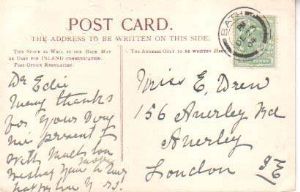 POST CARD.
THE ADDRESS TO BE WRITTEN ON THIS SIDE.
THIS SPACE AS WELL AS THE BACK MAY
BE USED FOR INLAND COMMUNICATION.
POST OFFICE REGULATION.
THE ADDRESS ONLY TO BE WRITTEN HERE.
Dr Edie
Many thanks
for your very
nice present
with much love
Miss E. Drew
156 Anerley Rd
Anerley
London
S.E